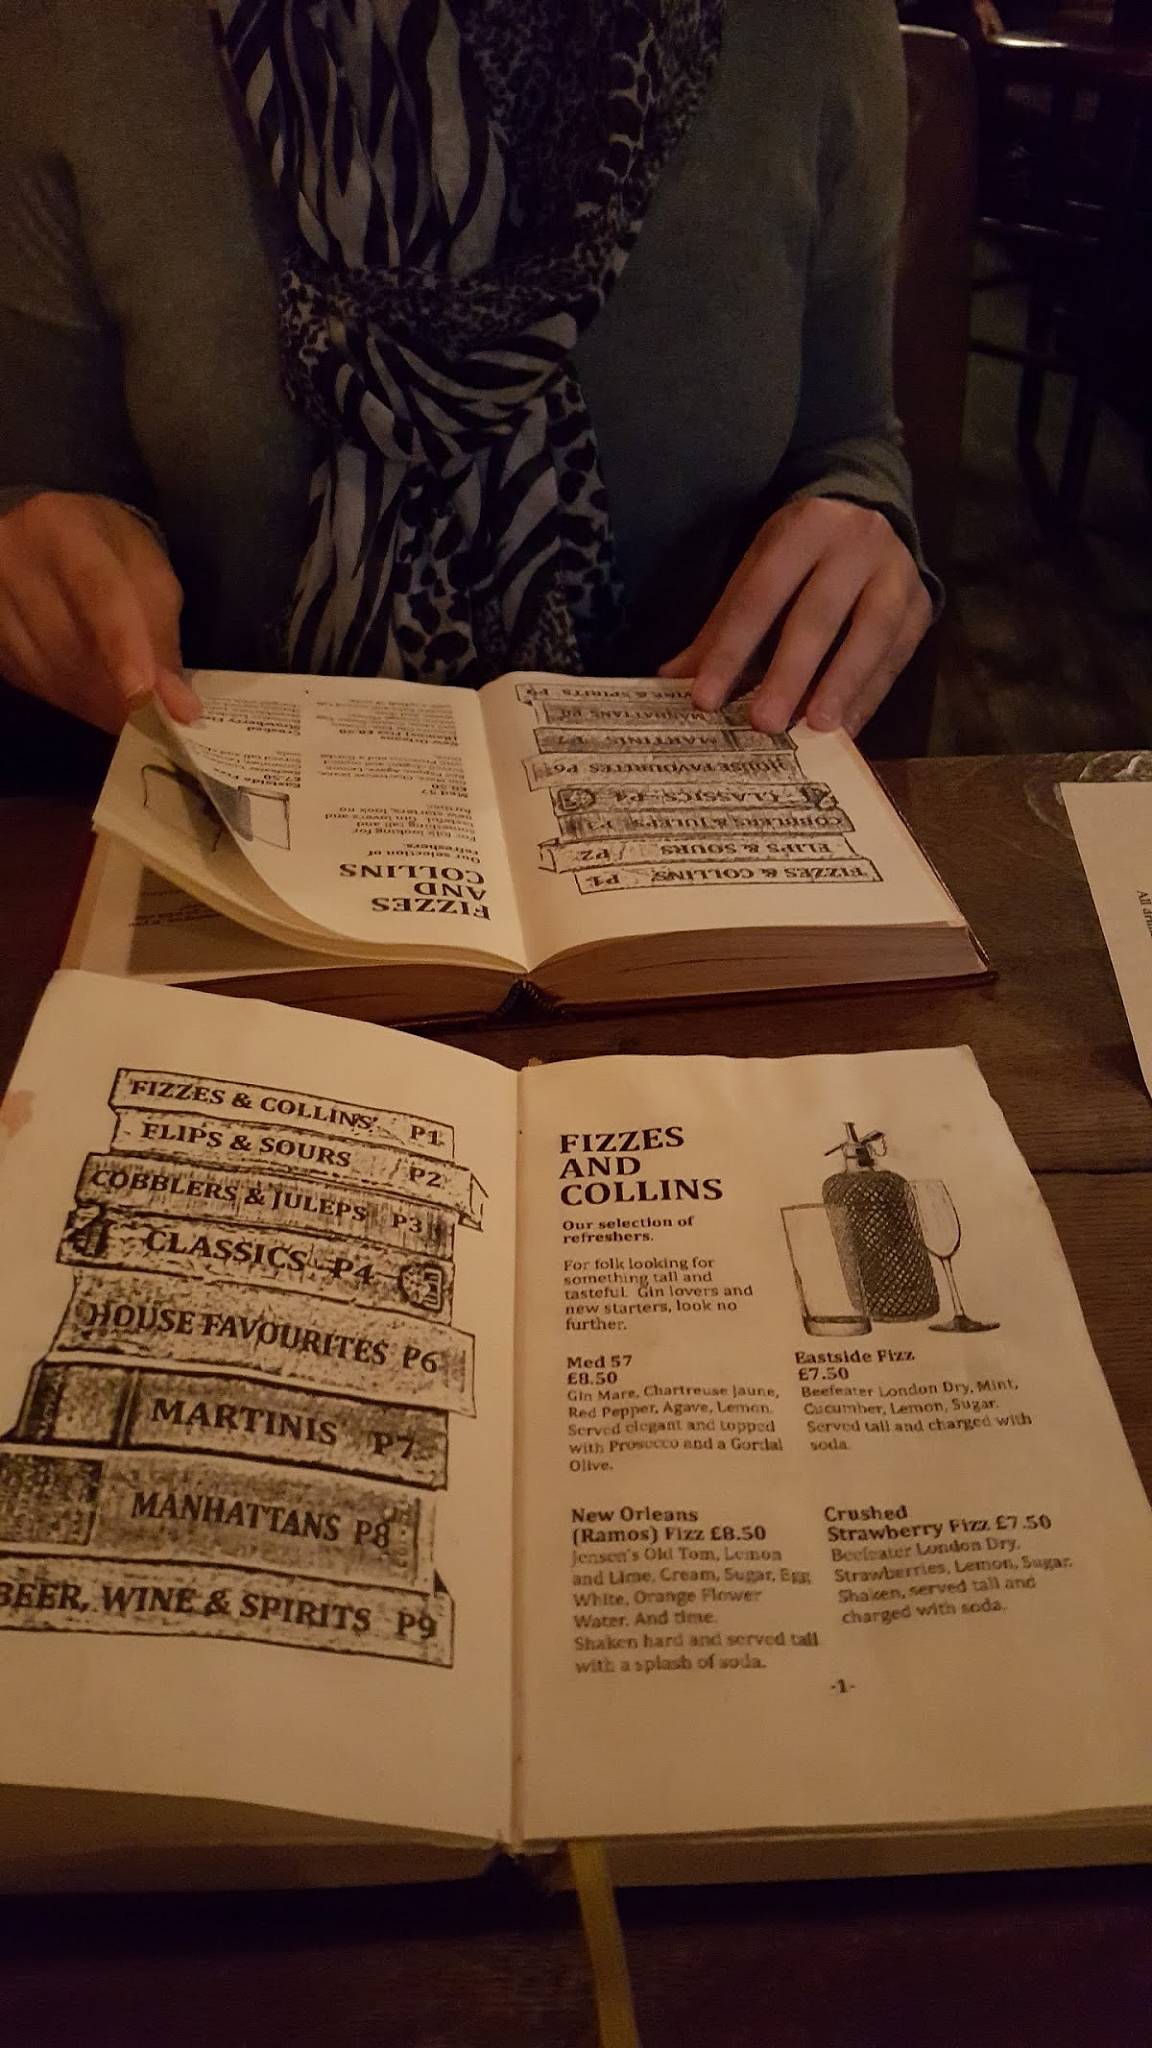 FIZZES & COLLINS P1
FLIPS & SOURS P2
COBBLERS & JULEPS P3
CLASSICS P4
HOUSE FAVOURITES P6
MARTINIS P7
MANHATTANS P8
BEER, WINE & SPIRITS P9
FIZZES
AND
COLLINS
Our selection of
refreshers.
For folk looking for
something tall and
tasteful. Gin lovers and
new starters, look no
further.
Med 57
£8.50
Gin Mare, Chartreuse Jaune,
Red Pepper, Agave, Lemon.
Served elegant and topped
with Prosecco and a Gordal
Olive.
Eastside Fizz
£7.50
Beefeater London Dry, Mint,
Cucumber, Lemon, Sugar.
Served tall and charged with
soda.
New Orleans
(Ramos) Fizz £8.50
Jensen's Old Tom, Lemon
and Lime, Cream, Sugar, Egg
White, Orange Flower
Water. And time.
Shaken hard and served tall
with a splash of soda.
Crushed
Strawberry Fizz £7.50
Beefeater London Dry,
Strawberries, Lemon, Sugar.
Shaken, served tall and
charged with soda.
-1-
FIZZES & COLLINS P1
FLIPS & SOURS P2
COBBLERS & JULEPS P3
CLASSICS P4
HOUSE FAVOURITES P6
MARTINIS P7
MANHATTANS P8
WINE & SPIRITS P9
FIZZES
AND
COLLINS
Our selection of
refreshers.
For folk looking for
something tall and
tasteful. Gin lovers and
new starters, look no
further.
Med 57
£8.50
Eastside Fizz
£7.50
New Orleans
(Ramos) Fizz £8.50
Crushed
Strawberry
All